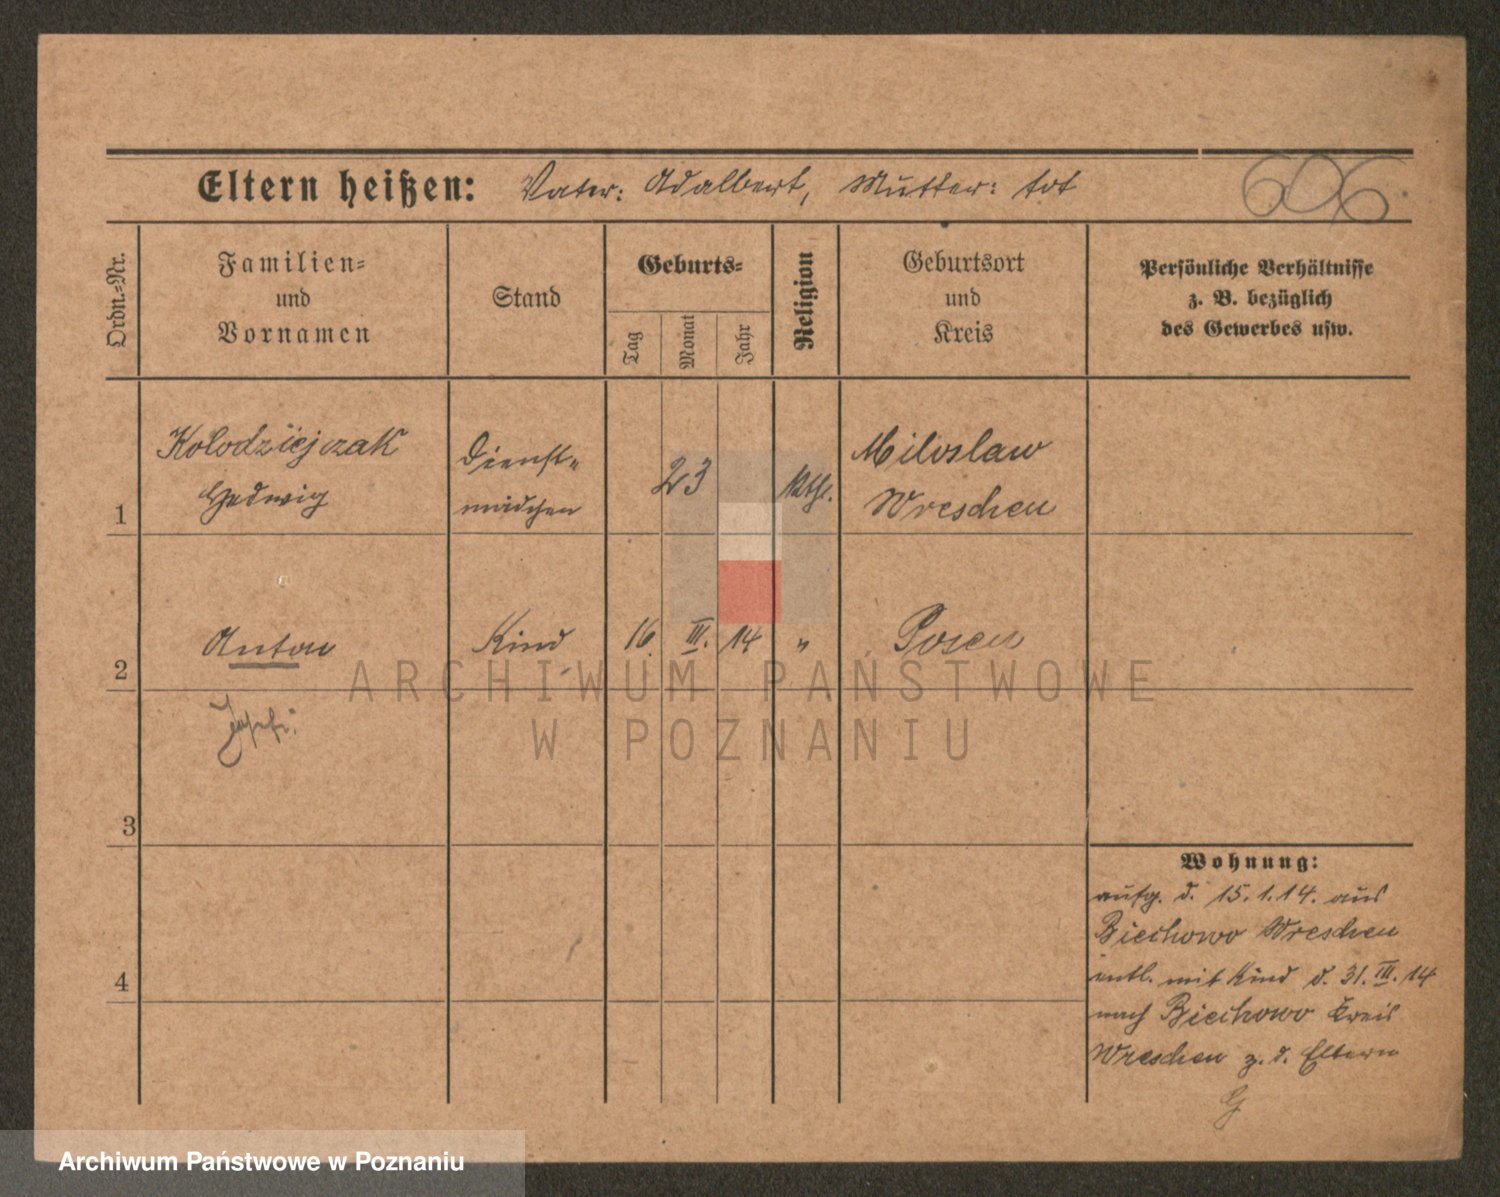 Eltern heißen: Vater: Adalbert, Mutter: tot
606
Ordn.-Nr.
Familien-
und
Vornamen
Stand
Geburts-
Tag
Monat
Jahr
Religion
Geburtsort
und
Kreis
Persönliche Verhältnisse
z. B. bezüglich
des Gewerbes usw.
1
Kolodziejczak
Hedwig
Dienst-
mädchen
23
Kth.
Miloslaw
Wreschen
2
Anton
Kind
16. III. 14
"
Posen
ARCHIWUM PAŃSTWOWE
W POZNANIU
3
4
Wohnung:
aufg. d. 15.1.14. aus
Biechowo Wreschen
entl. mit Kind d. 31. III. 14
nach Biechowo Kreis
Wreschen z. d. Eltern
Archiwum Państwowe w Poznaniu